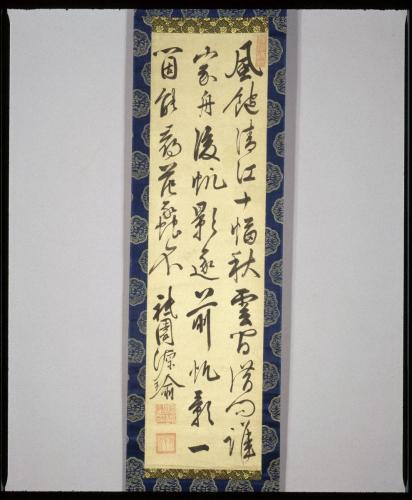 風飽清江十幅秋雲間借問誰
家舟後帆影逐前帆影一
箇能花不
祇園源瑜